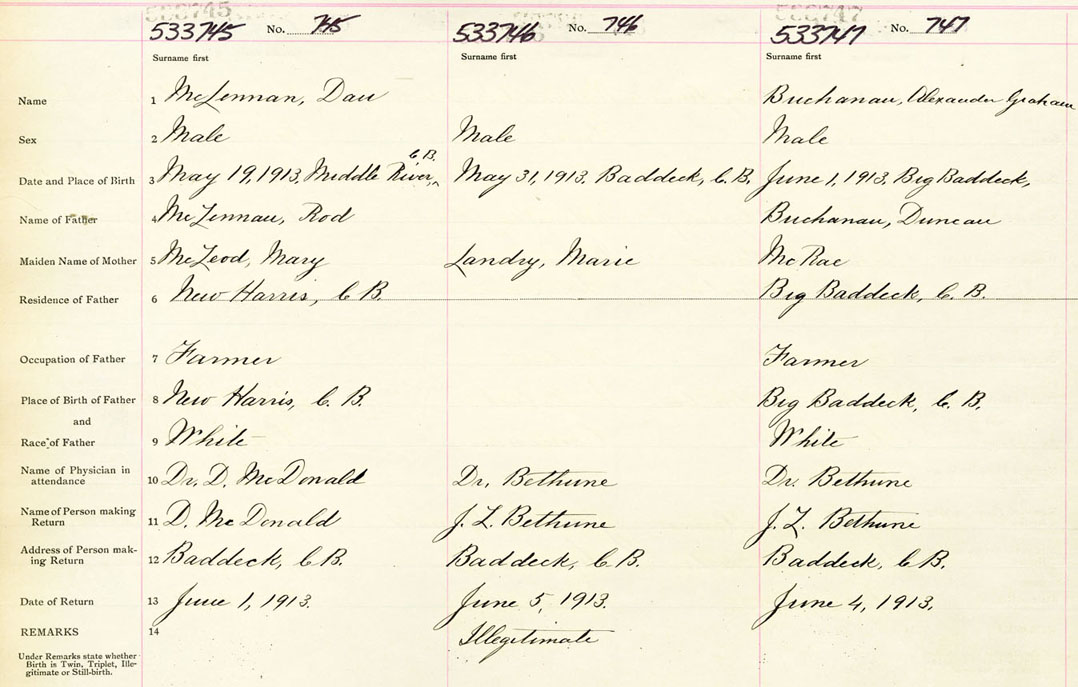 533745 533747
533745 No. 745 533746 No. 746 533747 No. 747
Surname first Surname first Surname first
Name 1 McLennan, Dan Buchanan, Alexander Graham
Sex 2 Male Male Male
Date and Place of Birth 3 May 19, 1913, Middle River, C. B. May 31, 1913. Baddeck, C. B. June 1, 1913. Big Baddeck,
Name of Father 4 McLennan, Rod Buchanan, Duncan
Maiden Name of Mother 5 McLeod, Mary Landry, Marie McRae
Residence of Father 6 New Harris, C. B. Big Baddeck, C. B.
Occupation of Father 7 Farmer Farmer
Place of Birth of Father 8 New Harris, C. B. Big Baddeck, C. B.
and
Race of Father 9 White White
Name of Physician in
attendance 10 Dr. D. McDonald Dr. Bethune Dr. Bethune
Name of Person making
Return 11 D. McDonald J. L. Bethune J. L. Bethune
Address of Person mak-
ing Return 12 Baddeck, C B. Baddeck, C B. Baddeck, C B.
Date of Return 13 June 1, 1913. June 5, 1913. June 4, 1913.
REMARKS 14 Illegitimate
Under Remarks state whether
Birth is Twin, Triplet, Ille-
gitimate or Still-birth.